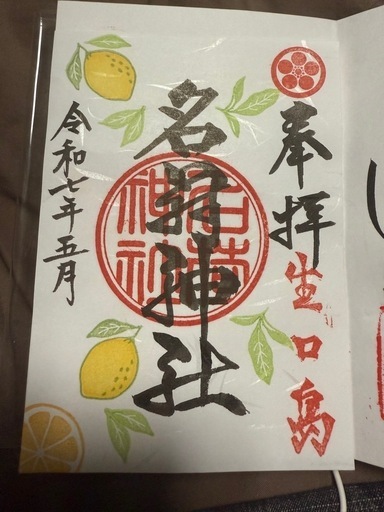 奉拝
生口島
名荷神社
名荷
神社
令和七年五月